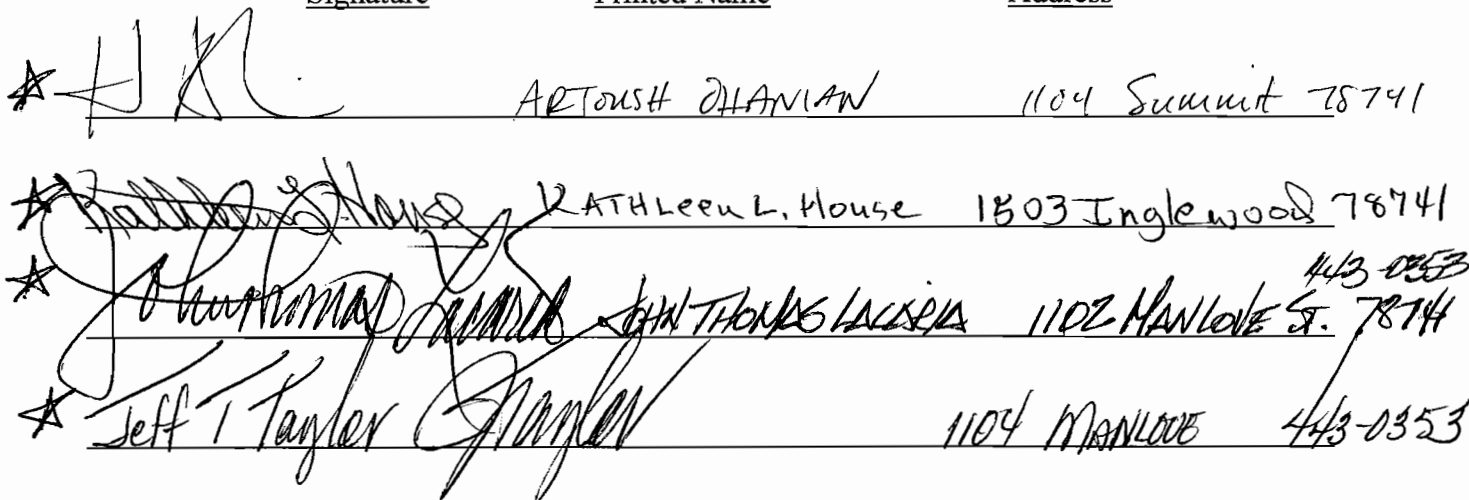 Signature Printed Name Address
ARTOUSH OHANIAN 1104 Summit 78741
Kathleen L House KATHLeen L. House 1503 Inglewood 78741
443-0353
John Thomas JOHN THOMAS LACARIA 1102 MANLOVE ST. 78741
Jeff T Taylor JTaylor 1104 MANLOVE 443-0353